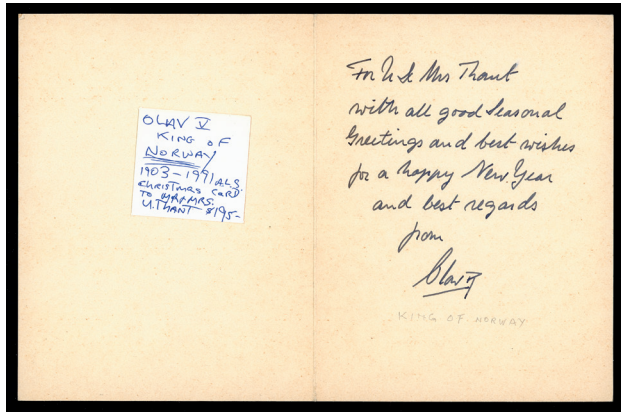 OLAV V
KING OF
NORWAY
1903-1991 A.L.S.
CHRISTMAS CARD
TO MR & MRS.
U. THANT $195-
For U & Mrs Thant
with all good Seasonal
Greetings and best wishes
for a happy New Year
and best regards
from
Olav R
KING OF NORWAY